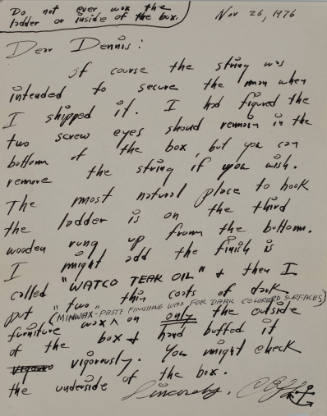 Do not ever wax the
ladder or inside of the box.
Nov 26, 1976
Dear Dennis:
Of course the string was
intended to secure the man when
I shipped it. I had figured the
two screw eyes should remain in the
bottom of the box, but you can
remove the string if you wish.
The most natural place to hook
the ladder is on the third
wooden rung up from the bottom.
I might add the finish is
called "WATCO TEAK OIL" & then I
put "two" thin coats of dark
(MINWAX-PASTE FINISHING WAX FOR DARK COLORED SURFACES)
furniture wax ^ on only the outside
of the box & hand buffed it
vigorously. You might check
the underside of the box.
Sincerely,